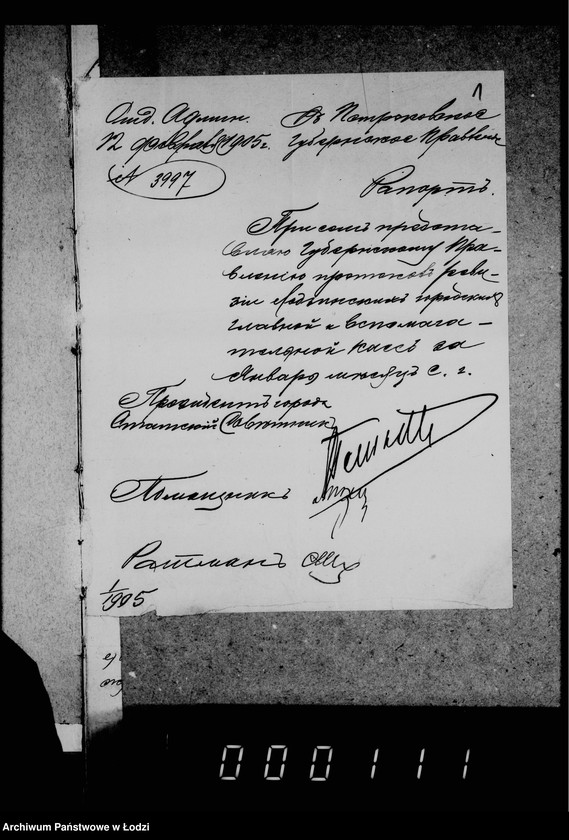 1
Отд. Админ.
12 февраля 1905 г.
№ 3997
Въ Петроковское
Губернское Правление
Рапортъ.
При семъ представ-
ляю Губернскому Пра-
влению протоколъ реви-
зіи Лодзинскихъ городскихъ
главной и вспомога-
тельной кассъ за
Январь месяцъ с. г.
Президентъ города
Статский Советникъ
Помощникъ
Ратманъ
1/1905
000111
Archiwum Państwowe w Łodzi